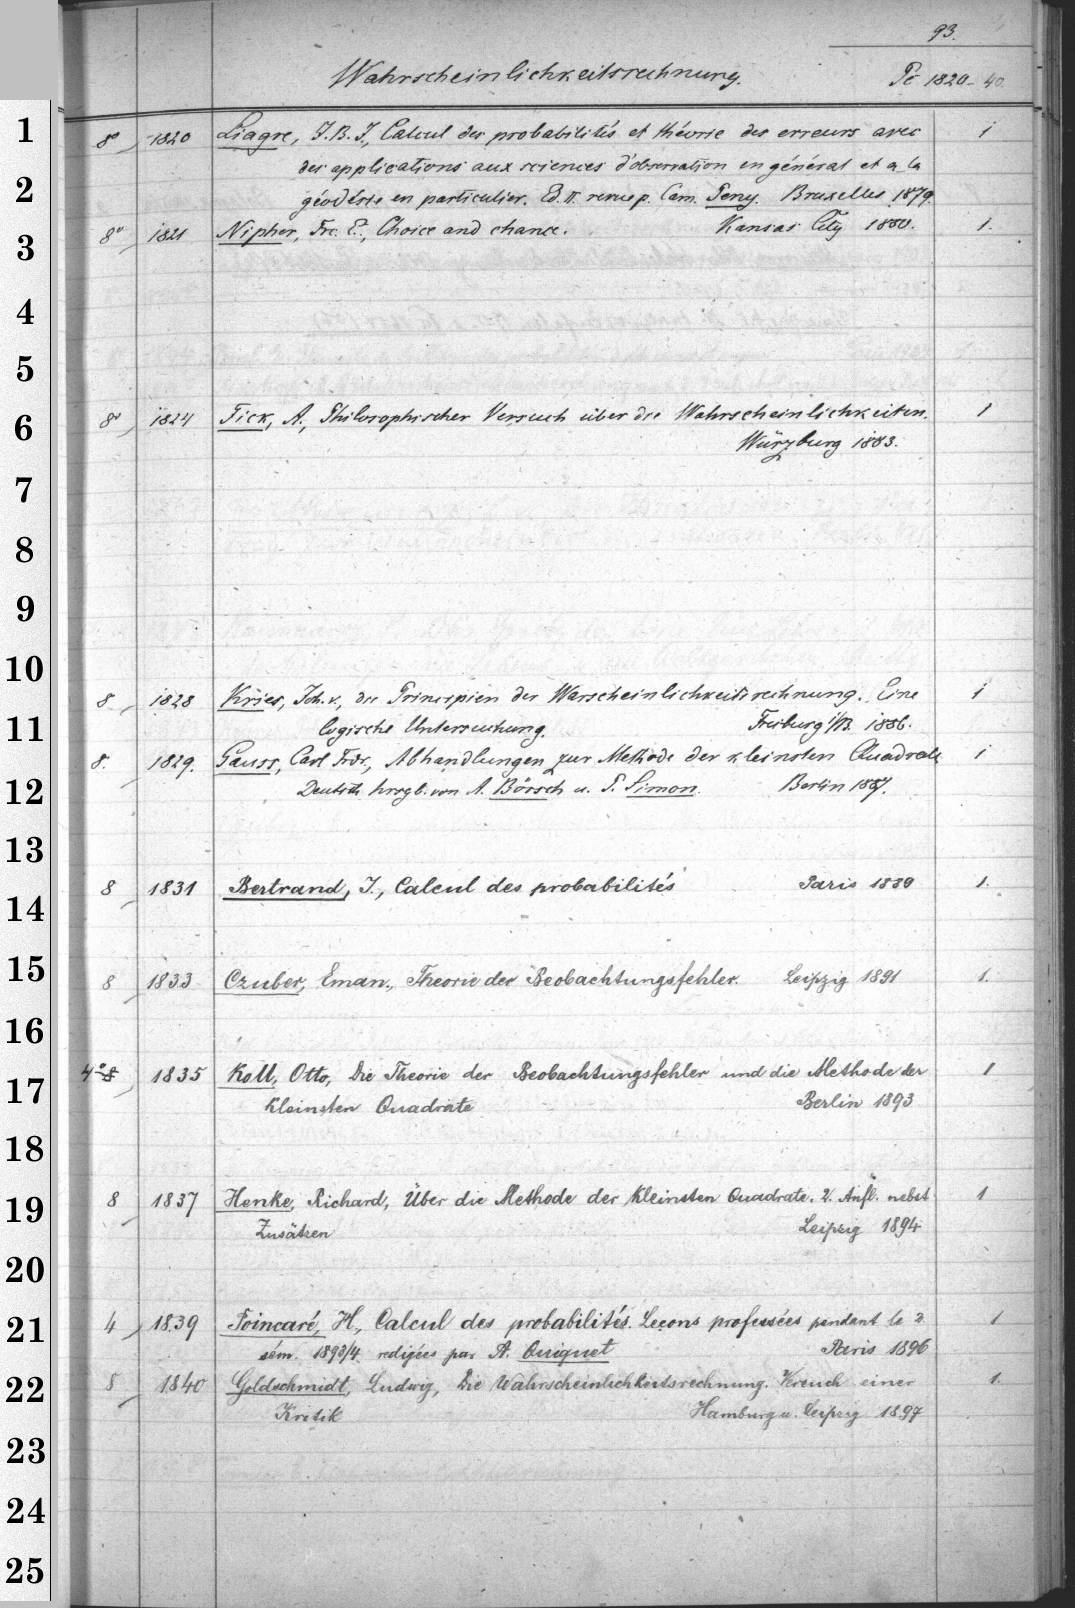 93.
Wahrscheinlichkeitsrechnung. Pc 1820-40
1
8° 1820 Liagre, J. B. J., Calcul des probabilités et théorie des erreurs avec 1
des applications aux sciences d'observation en général et a la
2
géodésie en particulier. Ed. II. revue p. Cam. Peny. Bruxelles 1879.
3
8° 1821 Nipher, Frc. E., Choice and chance. Kansas City 1880. 1.
4
5
6
8° 1824 Fick, A., Philosophischer Versuch über die Wahrscheinlichkeiten. 1
Würzburg 1883.
7
8
9
10
8 1828 Kries, Joh. v., die Principien der Warscheinlichkeitsrechnung. Eine 1
11
logische Untersuchung. Freiburg i/B. 1886.
8. 1829. Gauss, Carl Frdr., Abhandlungen zur Methode der kleinsten Quadrate 1
12
Deutsch hrsgb. von A. Börsch u. P. Simon. Berlin 1887.
13
14
8 1831 Bertrand, J., Calcul des probabilités Paris 1889 1.
15
8 1833 Czuber, Eman., Theorie der Beobachtungsfehler. Leipzig 1891 1.
16
17
4° 8 1835 Koll, Otto, Die Theorie der Beobachtungsfehler und die Methode der 1
kleinsten Quadrate Berlin 1893
18
19
8 1837 Henke, Richard, Über die Methode der kleinsten Quadrate. 2. Aufl. nebst 1
Zusätzen Leipzig 1894
20
21
4 1839 Poincaré, H., Calcul des probabilités. Leçons professées pendant le 2 1
sém. 1893/4 redigées par A. Quiquet Paris 1896
22
8 1840 Goldschmidt, Ludwig, Die Wahrscheinlichkeitsrechnung. Versuch einer 1.
Kritik Hamburg u. Leipzig 1897
23
24
25